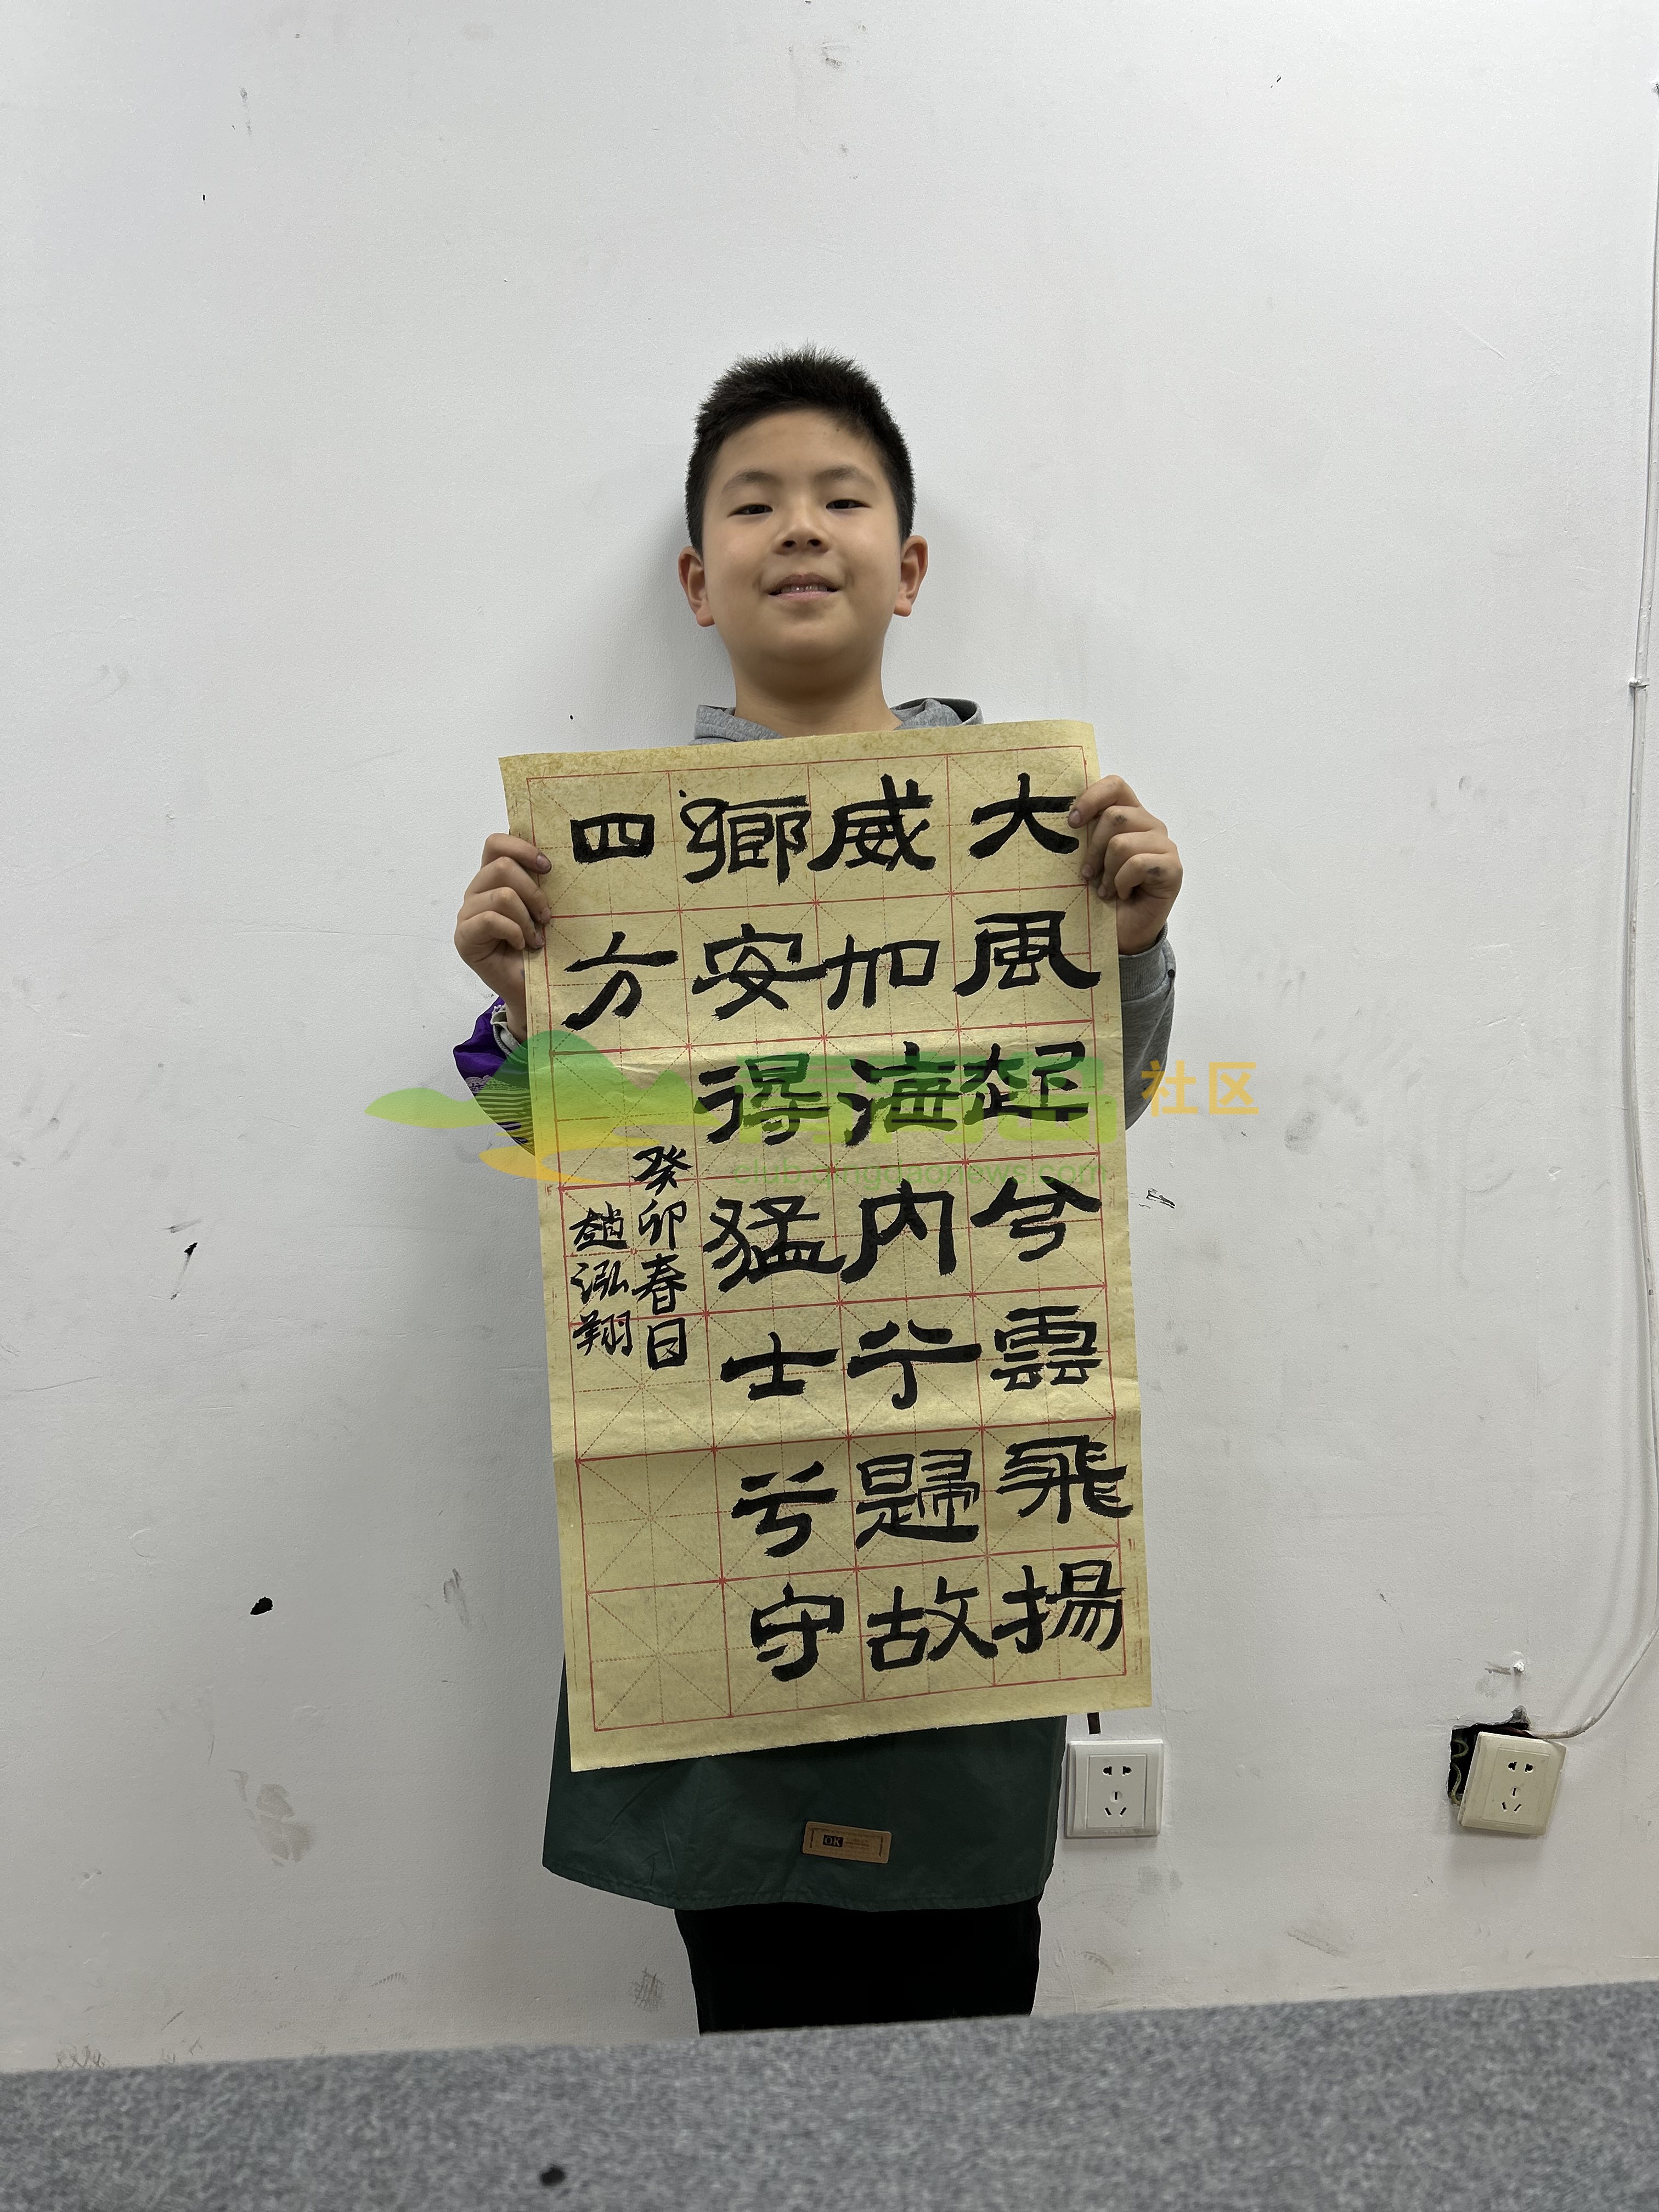 大風起兮雲飛揚
威加海内行歸故
鄉安得猛士兮守
四方
癸卯春日
趙泓翔
青青岛社区
club.qingdaonews.com
OK